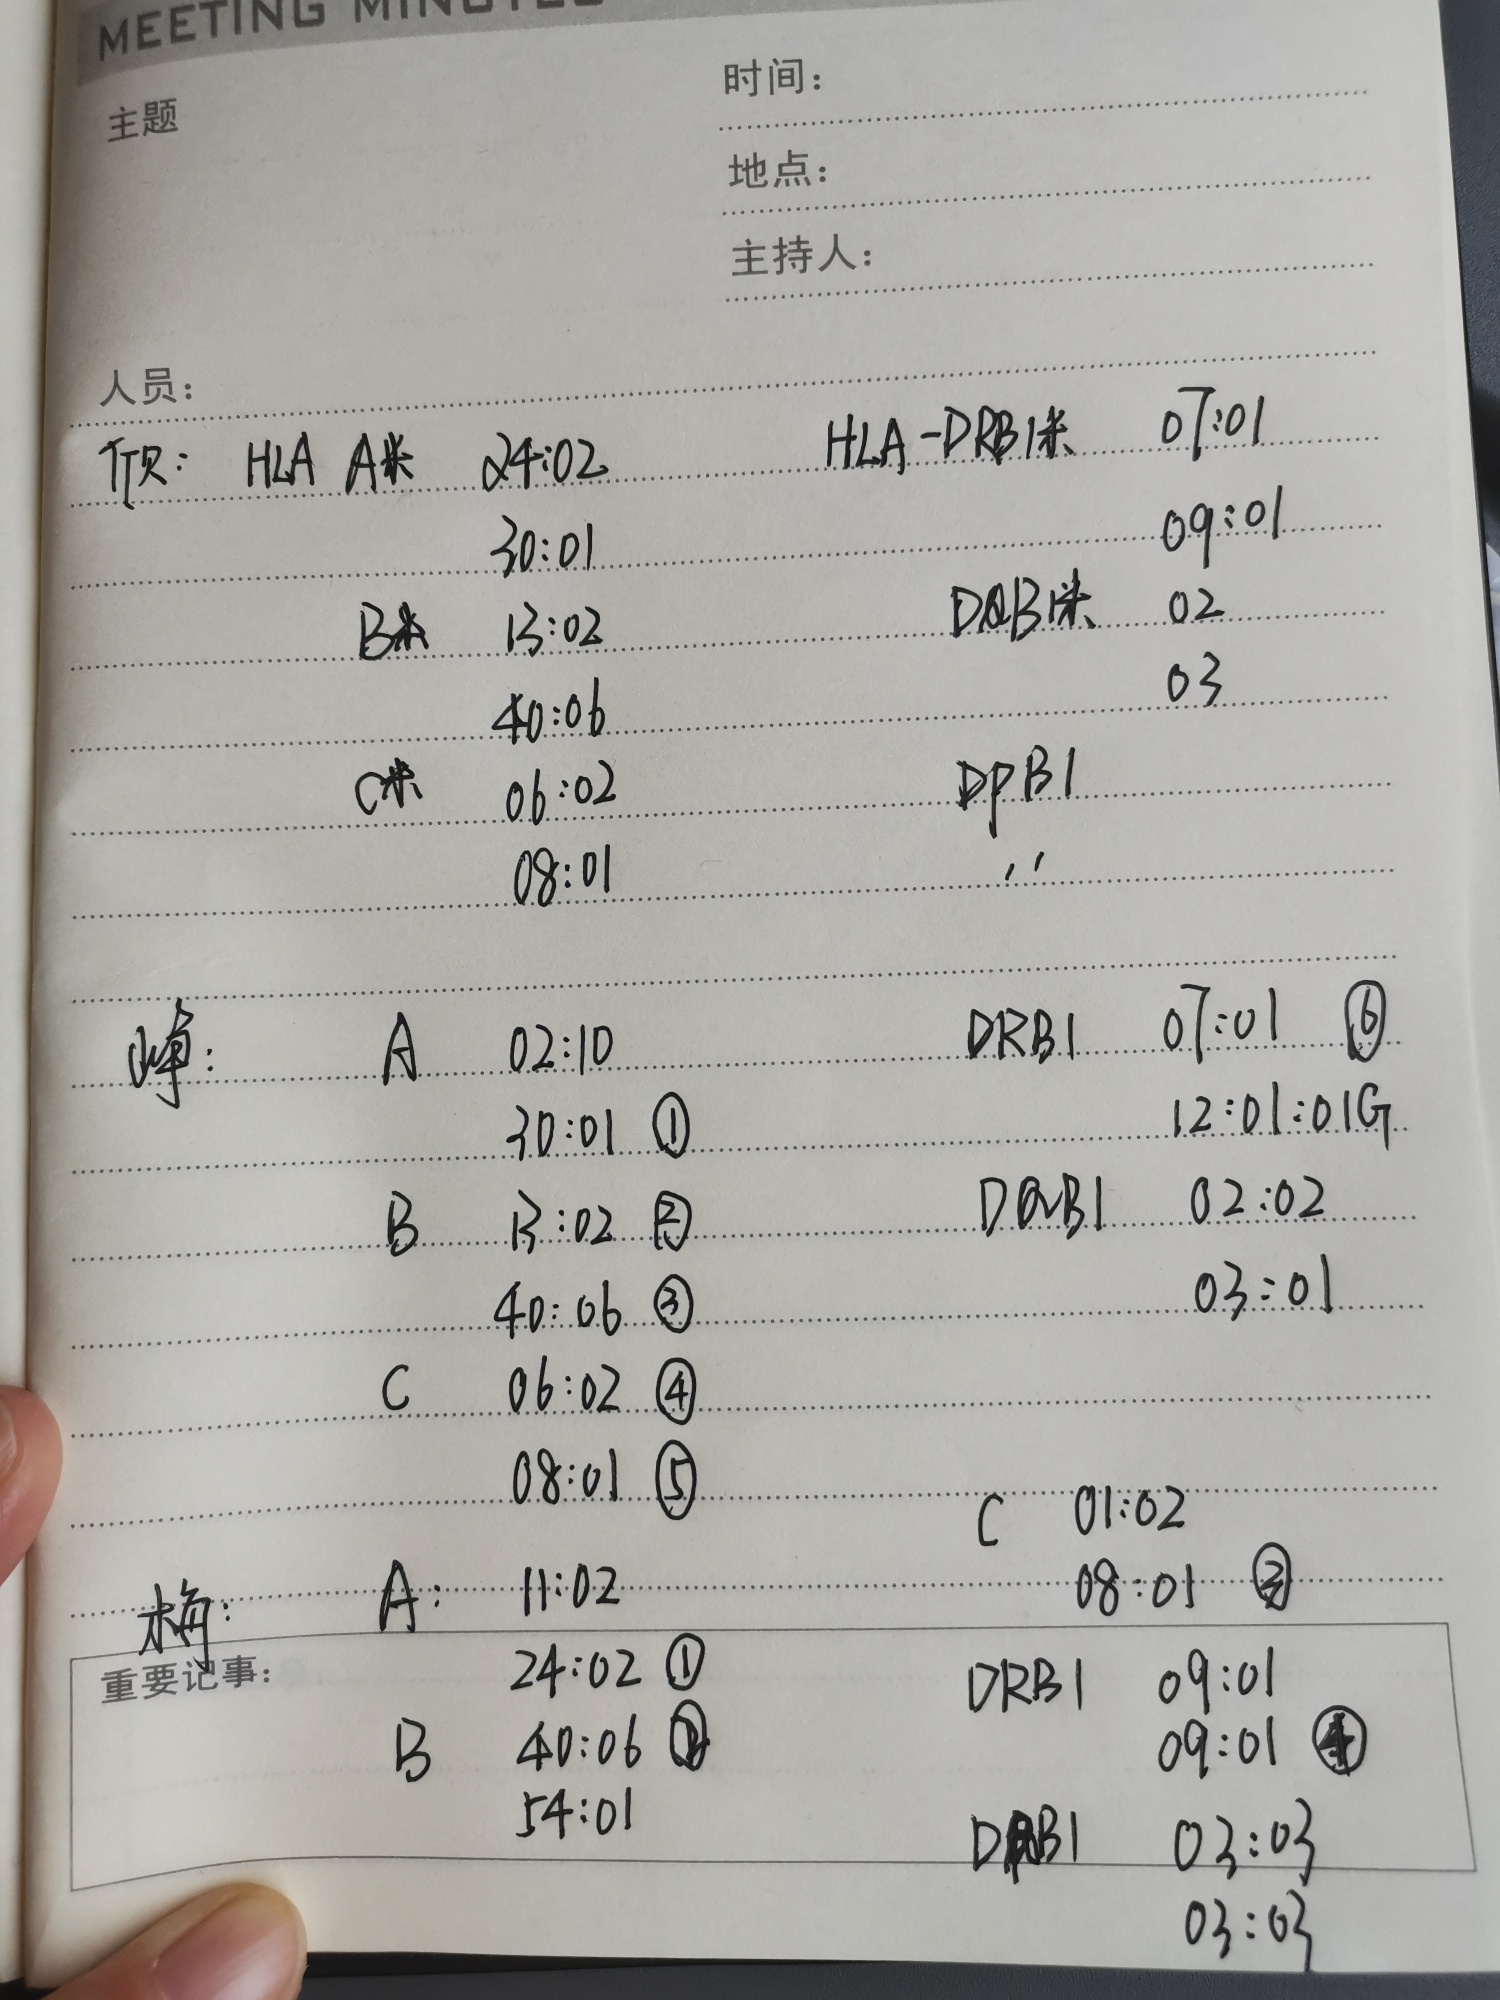 MEETING MINUTES
主题
时间：
地点：
主持人：
人员：
HLA A* 24:02 HLA-DRB1* 07:01
30:01 09:01
B* 13:02 DQB1* 02
40:06 03
C* 06:02 DPB1
08:01 ''
A 02:10 DRB1 07:01 ⑥
30:01 ① 12:01:01G
B 13:02 ② DQB1 02:02
40:06 ③ 03:01
C 06:02 ④
08:01 ⑤
C 01:02
梅: A: 11:02 08:01 ③
重要记事： 24:02 ① DRB1 09:01
B 40:06 ② 09:01 ④
54:01 DQB1 03:03
03:03